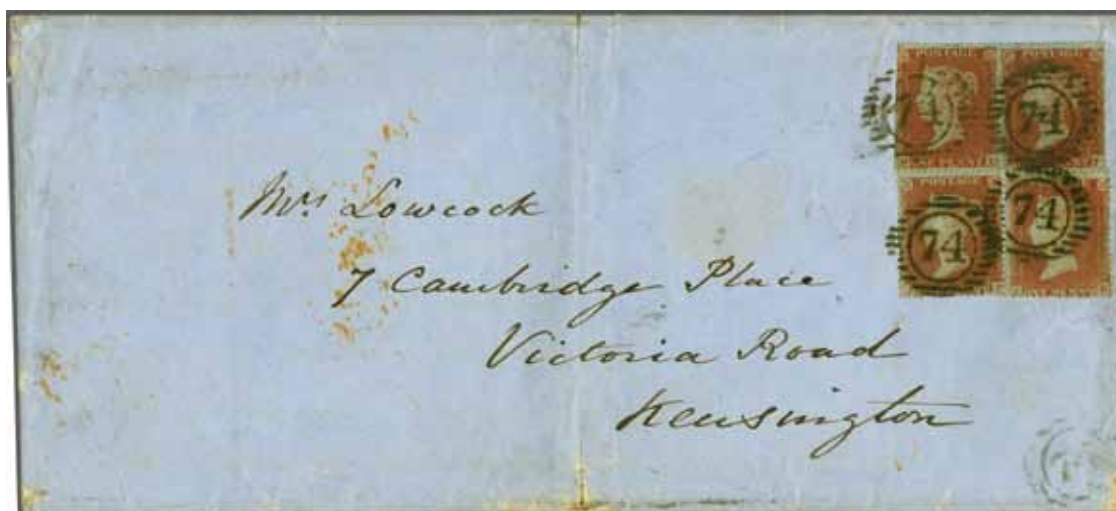 POSTAGE
74 74
POSTAGE
74 74
Mrs Lowcock
7 Cambridge Place
Victoria Road
Kensington